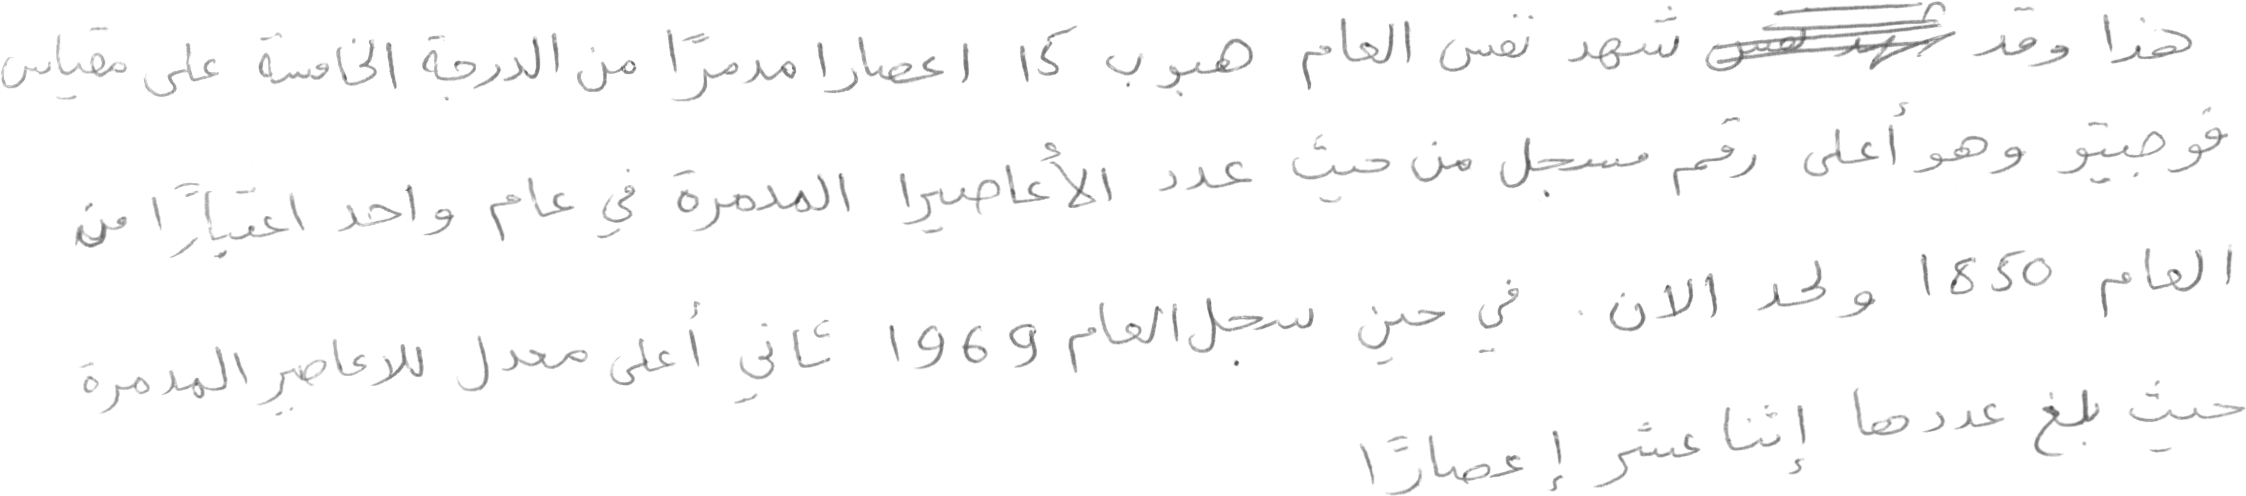 هذا وقد شهد نفس العام هبوب 15 اعصارا مدمرًا من الدرجة الخامسة على مقياس
فوجيتو وهو أعلى رقم مسجل من حيث عدد الأعاصيرا المدمرة في عام واحد اعتبارًا من
العام 1850 ولحد الان. في حين سجل العام 1969 ثاني أعلى معدل للاعاصير المدمرة
حيث بلغ عددها إثنا عشر إعصارًا